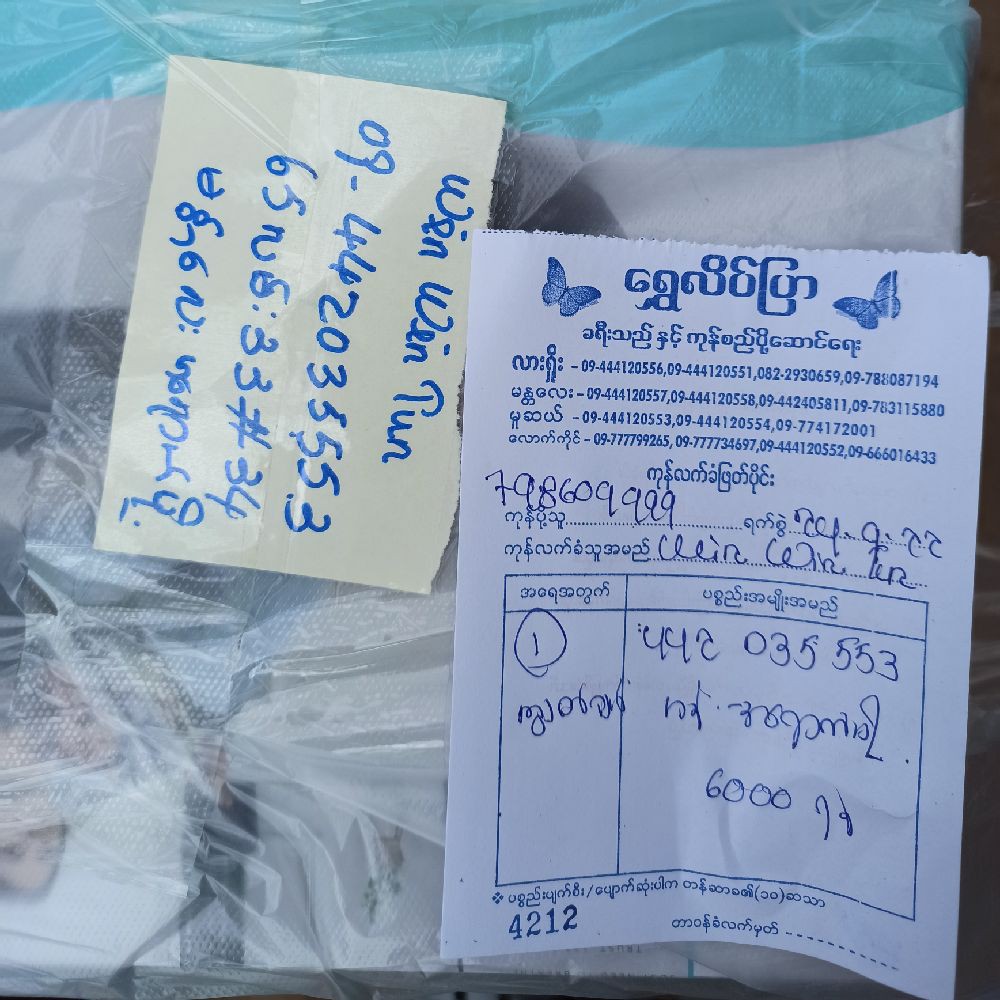 ဝင်းဝင်းပြား
09-442035553
65 လမ်း 33#34
မန္တလေး
ရွှေလိပ်ပြာ
ခရီးသည် နှင့် ကုန်စည်ပို့ဆောင်ရေး
လားရှိုး - 09-444120556,09-444120551,082-2930659,09-788087194
မန္တလေး - 09-444120557,09-444120558,09-442405811,09-783115880
မူဆယ် - 09-444120553,09-444120554,09-774172001
လောက်ကိုင် - 09-777799265,09-777734697,09-444120552,09-666016433
ကုန်လက်ခံဖြတ်ပိုင်း
798609999
ကုန်ပို့သူ ရက်စွဲ
ကုန်လက်ခံသူအမည် Win Win Tun
အရေအတွက် ပစ္စည်းအမျိုးအမည်
၁ 442 035 553
6000
❖ ပစ္စည်းပျက်စီး/ပျောက်ဆုံးပါက တန်ဆာခ၏(၁၀)ဆသာ
4212 တာဝန်ခံလက်မှတ်